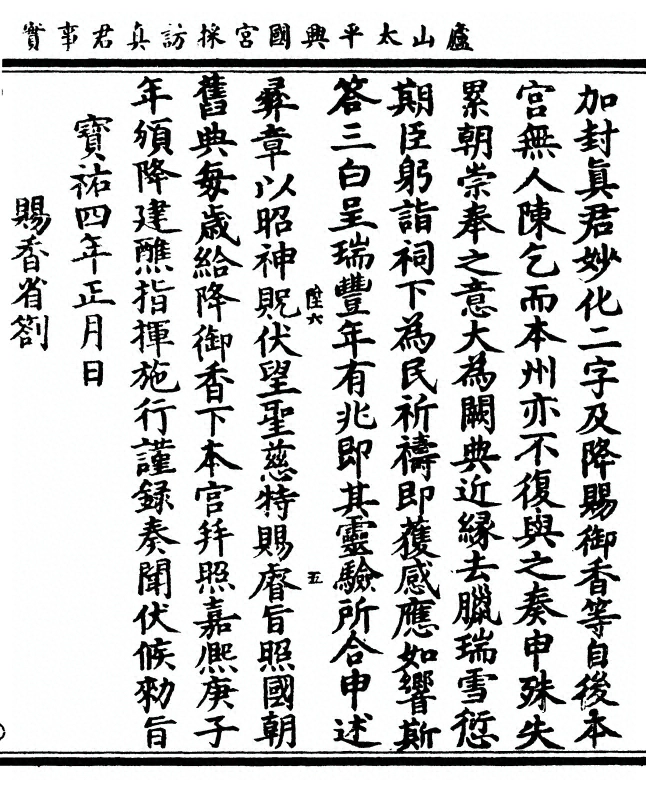 廬山太平興國宮採訪真君事實
加封真君妙化二字及降賜御香等自後本
宮無人陳乞而本州亦不復與之奏申殊失
累朝崇奉之意大為闕典近緣去臘瑞雪愆
期臣躬詣祠下為民祈禱即獲感應如響斯
答三白呈瑞豐年有兆即其靈驗所合申述
彞章以昭神貺伏望聖慈特賜睿旨照國朝
舊典每歲給降御香下本宮并照嘉熙庚子
年頒降建醮指揮施行謹録奏聞伏候勑旨
寶祐四年正月日
賜香省劄
陸六
五